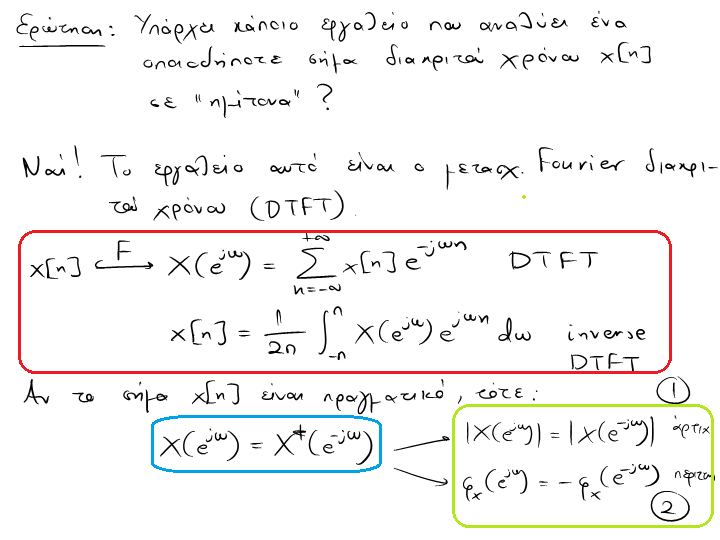 Ερώτηση: Υπάρχει κάποιο εργαλείο που αναλύει ένα
οποιοδήποτε σήμα διακριτού χρόνου x[n]
σε "ημίτονα"?
Ναί! Το εργαλείο αυτό είναι ο μετασχ. Fourier διακρι-
τού χρόνου (DTFT).
x[n] ⟷F X(e^{jω}) = Σ_{n=-∞}^{+∞} x[n] e^{-jωn} DTFT
x[n] = 1/2π ∫_{-π}^{π} X(e^{jω}) e^{jωn} dω inverse
DTFT
Αν το σήμα x[n] είναι πραγματικό, τότε: ①
X(e^{jω}) = X*(e^{-jω}) → |X(e^{jω})| = |X(e^{-jω})| άρτια
→ φ_x(e^{jω}) = -φ_x(e^{-jω}) περιττ
②